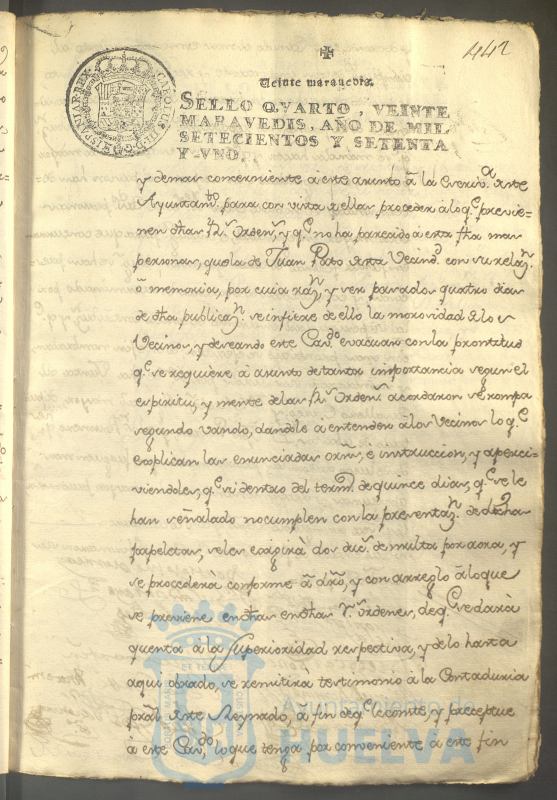 442
Veinte maravedis.
SELLO QVARTO, VEINTE
MARAVEDIS, AÑO DE MIL
SETECIENTOS Y SETENTA
Y VNO.
y demas concerniente à este asunto â la Escriv.ª deste
Ayuntam.to para con vista dellas proceder àlo q.e previe-
nen dhas R.s Ordens, y q.e no ha parecido a esta fha mas
personas, quela de Juan Pato desta Vecind.d con su relaz.n
ô memoria, por cuia raz.n, y ser pasados quatro dias
de dha publicaz.n se infiere de ello la morosidad delos
Vecinos, y deseando este Cav.do evacuar con la prontitud
q.e se requiere à asunto detanta importancia segun el
espiritu, y mente delas R.s Ordens acordaron se rompa
segundo vando, dandole a entender àlos Vecinos lo q.e
explican las enunciadas orns, è instruccion, y aperci-
viendoles, q.e si dentro del term.o de quince dias, q.e se le
han señalado nocumplen con la presentaz.n de dichas
papeletas, seles exigirà dos duc.s de multa por aora, y
se procederà conforme â dro, y con arreglo àloque
se previene endhas endhas R.s Ordenes, deq.e sedarà
quenta à la Superioridad respectiva, y delo hasta
aqui obrado, se remitira testimonio à la Contaduria
pral deste Reynado, à fin deq.e leconste, y preceptue
à este Cav.do loque tenga por conveniente à este fin
Ayuntamiento de
HUELVA